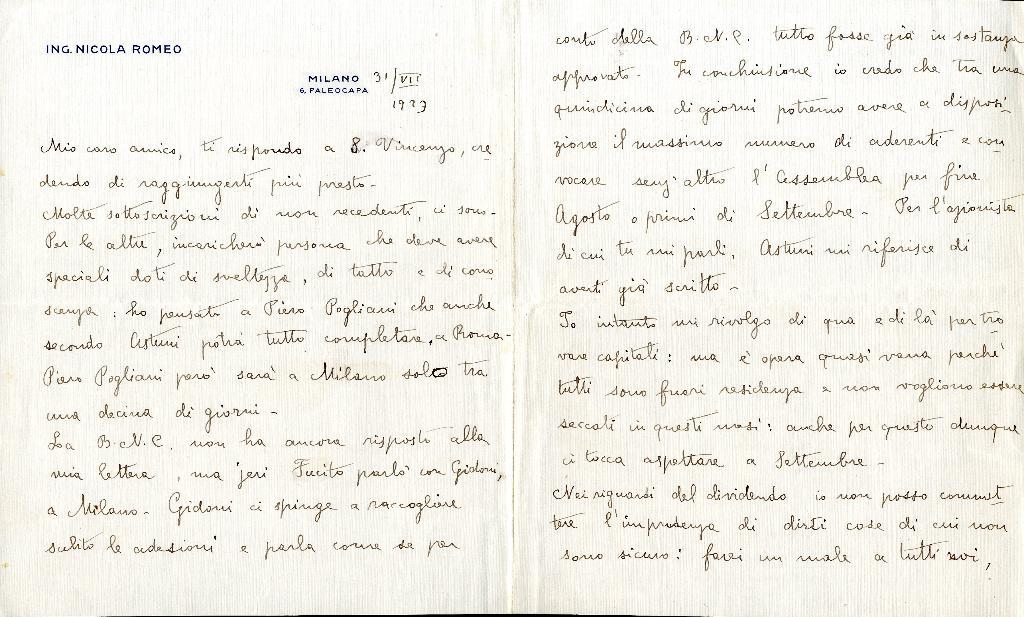 ING. NICOLA ROMEO
MILANO 31/VII
6, PALEOCAPA 1923
Mio caro amico, ti rispondo a S. Vincenzo, cre
dendo di raggiungerti più presto-
Molte sottoscrizioni di non recedenti, ci sono-
Per le altre, incaricherò persona che deve avere
speciali doti di sveltezza, di tatto e di cono
scenza: ho pensato a Piero Pogliani che anche
secondo Astuni potrà tutto completare, a Roma-
Piero Pogliani però sarà a Milano solo tra
una decina di giorni-
La B.N.C. non ha ancora risposto alla
mia lettera, ma jeri Fucito parlò con Gidoni,
a Milano- Gidoni ci spinge a raccogliere
subito le adesioni e parla come se per
conto della B.N.C. tutto fosse già in sostanza
approvato- In conchiusione io credo che tra una
quindicina di giorni potremo avere a disposi
zione il massimo numero di aderenti e con
vocare senz'altro l'Assemblea per fine
Agosto o primi di Settembre- Per l'azionista
di cui tu mi parli, Astuni mi riferisce di
averti già scritto-
Io intanto mi rivolgo di qua e di là per tro
vare capitali: ma è opera quasi vana perchè
tutti sono fuori residenza e non vogliono essere
seccati in questi mesi: anche per questo dunque
ci tocca aspettare a Settembre-
Nei riguardi del dividendo io non posso commet
tere l'imprudenza di dirti cose di cui non
sono sicuro: farei un male a tutti noi,